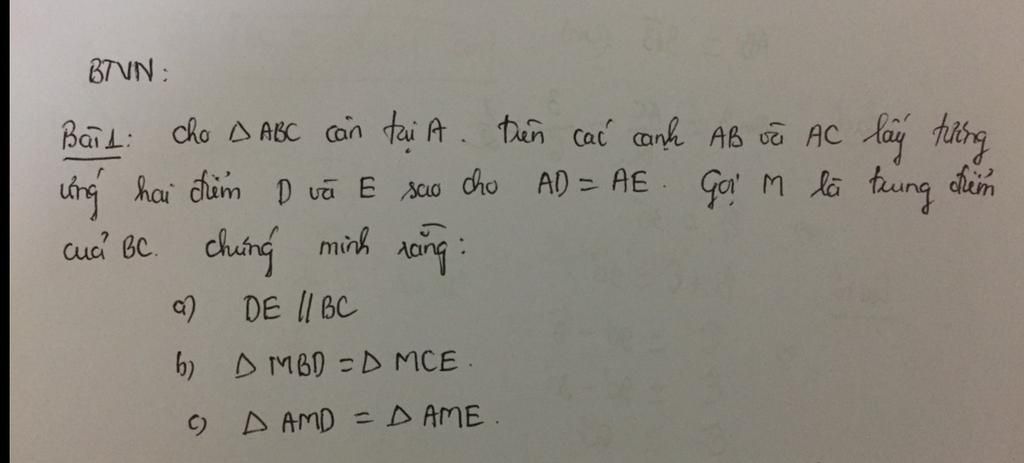 BTVN:
Bài 1: cho △ ABC cân tại A. trên các cạnh AB và AC lấy tương
ứng hai điểm D và E sao cho AD = AE. Gọi M là trung điểm
của BC. chứng minh rằng:
a) DE // BC
b) △ MBD = △ MCE.
c) △ AMD = △ AME.